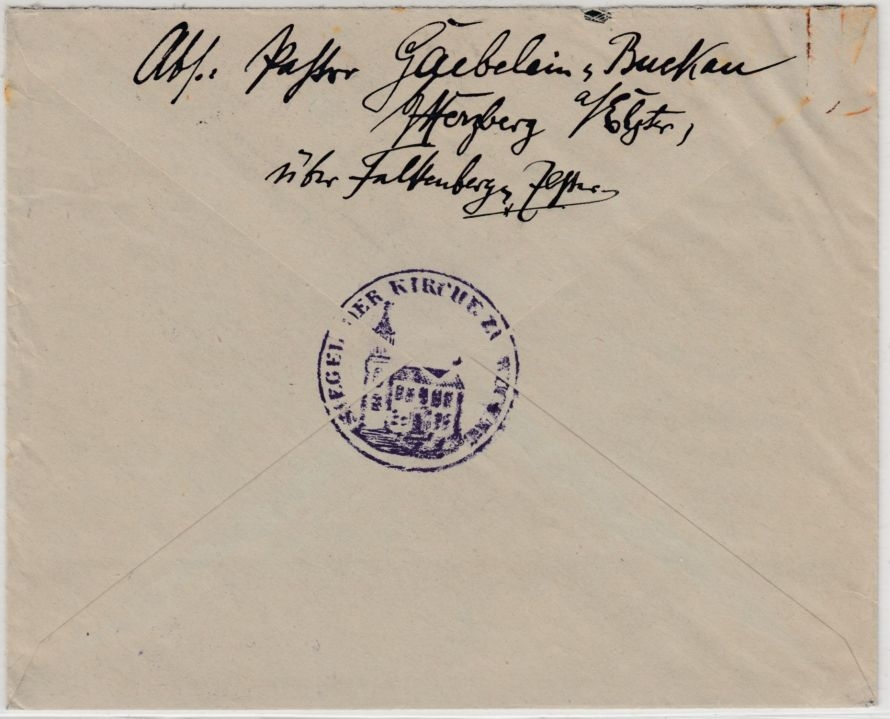 Abs.: Pastor Gaebelein, Buckau
Herzberg a/Elster,
über Falkenberg, Elster
SIEGEL DER KIRCHE ZU